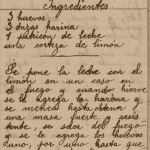 Ingredientes
3 huevos
3 onzas harina
1 cubilón de leche
una corteza de limón
Se pone la leche con el
limón en un caso en
el fuego y cuando hierve
se le agrega la harina y
se menea hasta obtener
una masa fuerte, y
tente, se saca del fuego
y se le agrega los huevos
uno, por uno hasta que